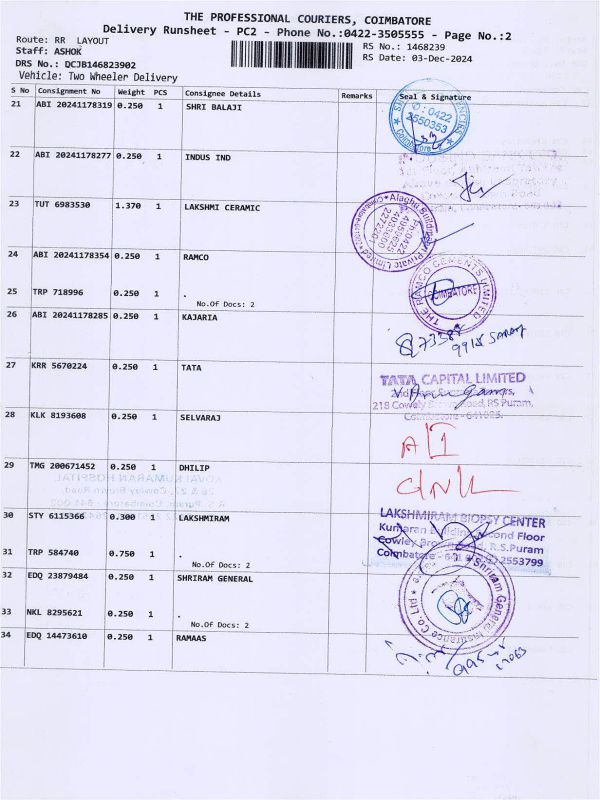 THE PROFESSIONAL COURIERS, COIMBATORE
Delivery Runsheet - PC2 - Phone No.:0422-3505555 - Page No.:2
Route: RR LAYOUT
Staff: ASHOK
DRS No.: QCJB146823902
Vehicle: Two Wheeler Delivery
RS No.: 1468239
RS Date: 03-Dec-2024
S No Consignment No Weight PCS Consignee Details Remarks Seal & Signature
21 ABI 20241178319 0.250 1 SHRI BALAJI
0422
2550353
Coimbatore
22 ABI 20241178277 0.250 1 INDUS IND
23 TUT 6983530 1.370 1 LAKSHMI CERAMIC
Alaghu Buildmart Private Limited
Ph:0422
24 ABI 20241178354 0.250 1 RAMCO
THE RAMCO CEMENTS LIMITED
COIMBATORE
25 TRP 718996 0.250 1 .
No.Of Docs: 2
26 ABI 20241178285 0.250 1 KAJARIA
27 KRR 5670224 0.250 1 TATA
TATA CAPITAL LIMITED
218 Cowly Road, RS Puram,
Coimbatore - 641025.
28 KLK 8193608 0.250 1 SELVARAJ
29 TMG 200671452 0.250 1 DHILIP
30 STY 6115366 0.300 1 LAKSHMIRAM
LAKSHMIRAM BIOPSY CENTER
Kumaran Building, Second Floor
Cowley Brown Road, R.S.Puram
Coimbatore - 641 2553799
31 TRP 584740 0.750 1 .
No.Of Docs: 2
32 EDQ 23879484 0.250 1 SHRIRAM GENERAL
Shriram General Insurance Co. Ltd.
33 NKL 8295621 0.250 1 .
No.Of Docs: 2
34 EDQ 14473610 0.250 1 RAMAAS